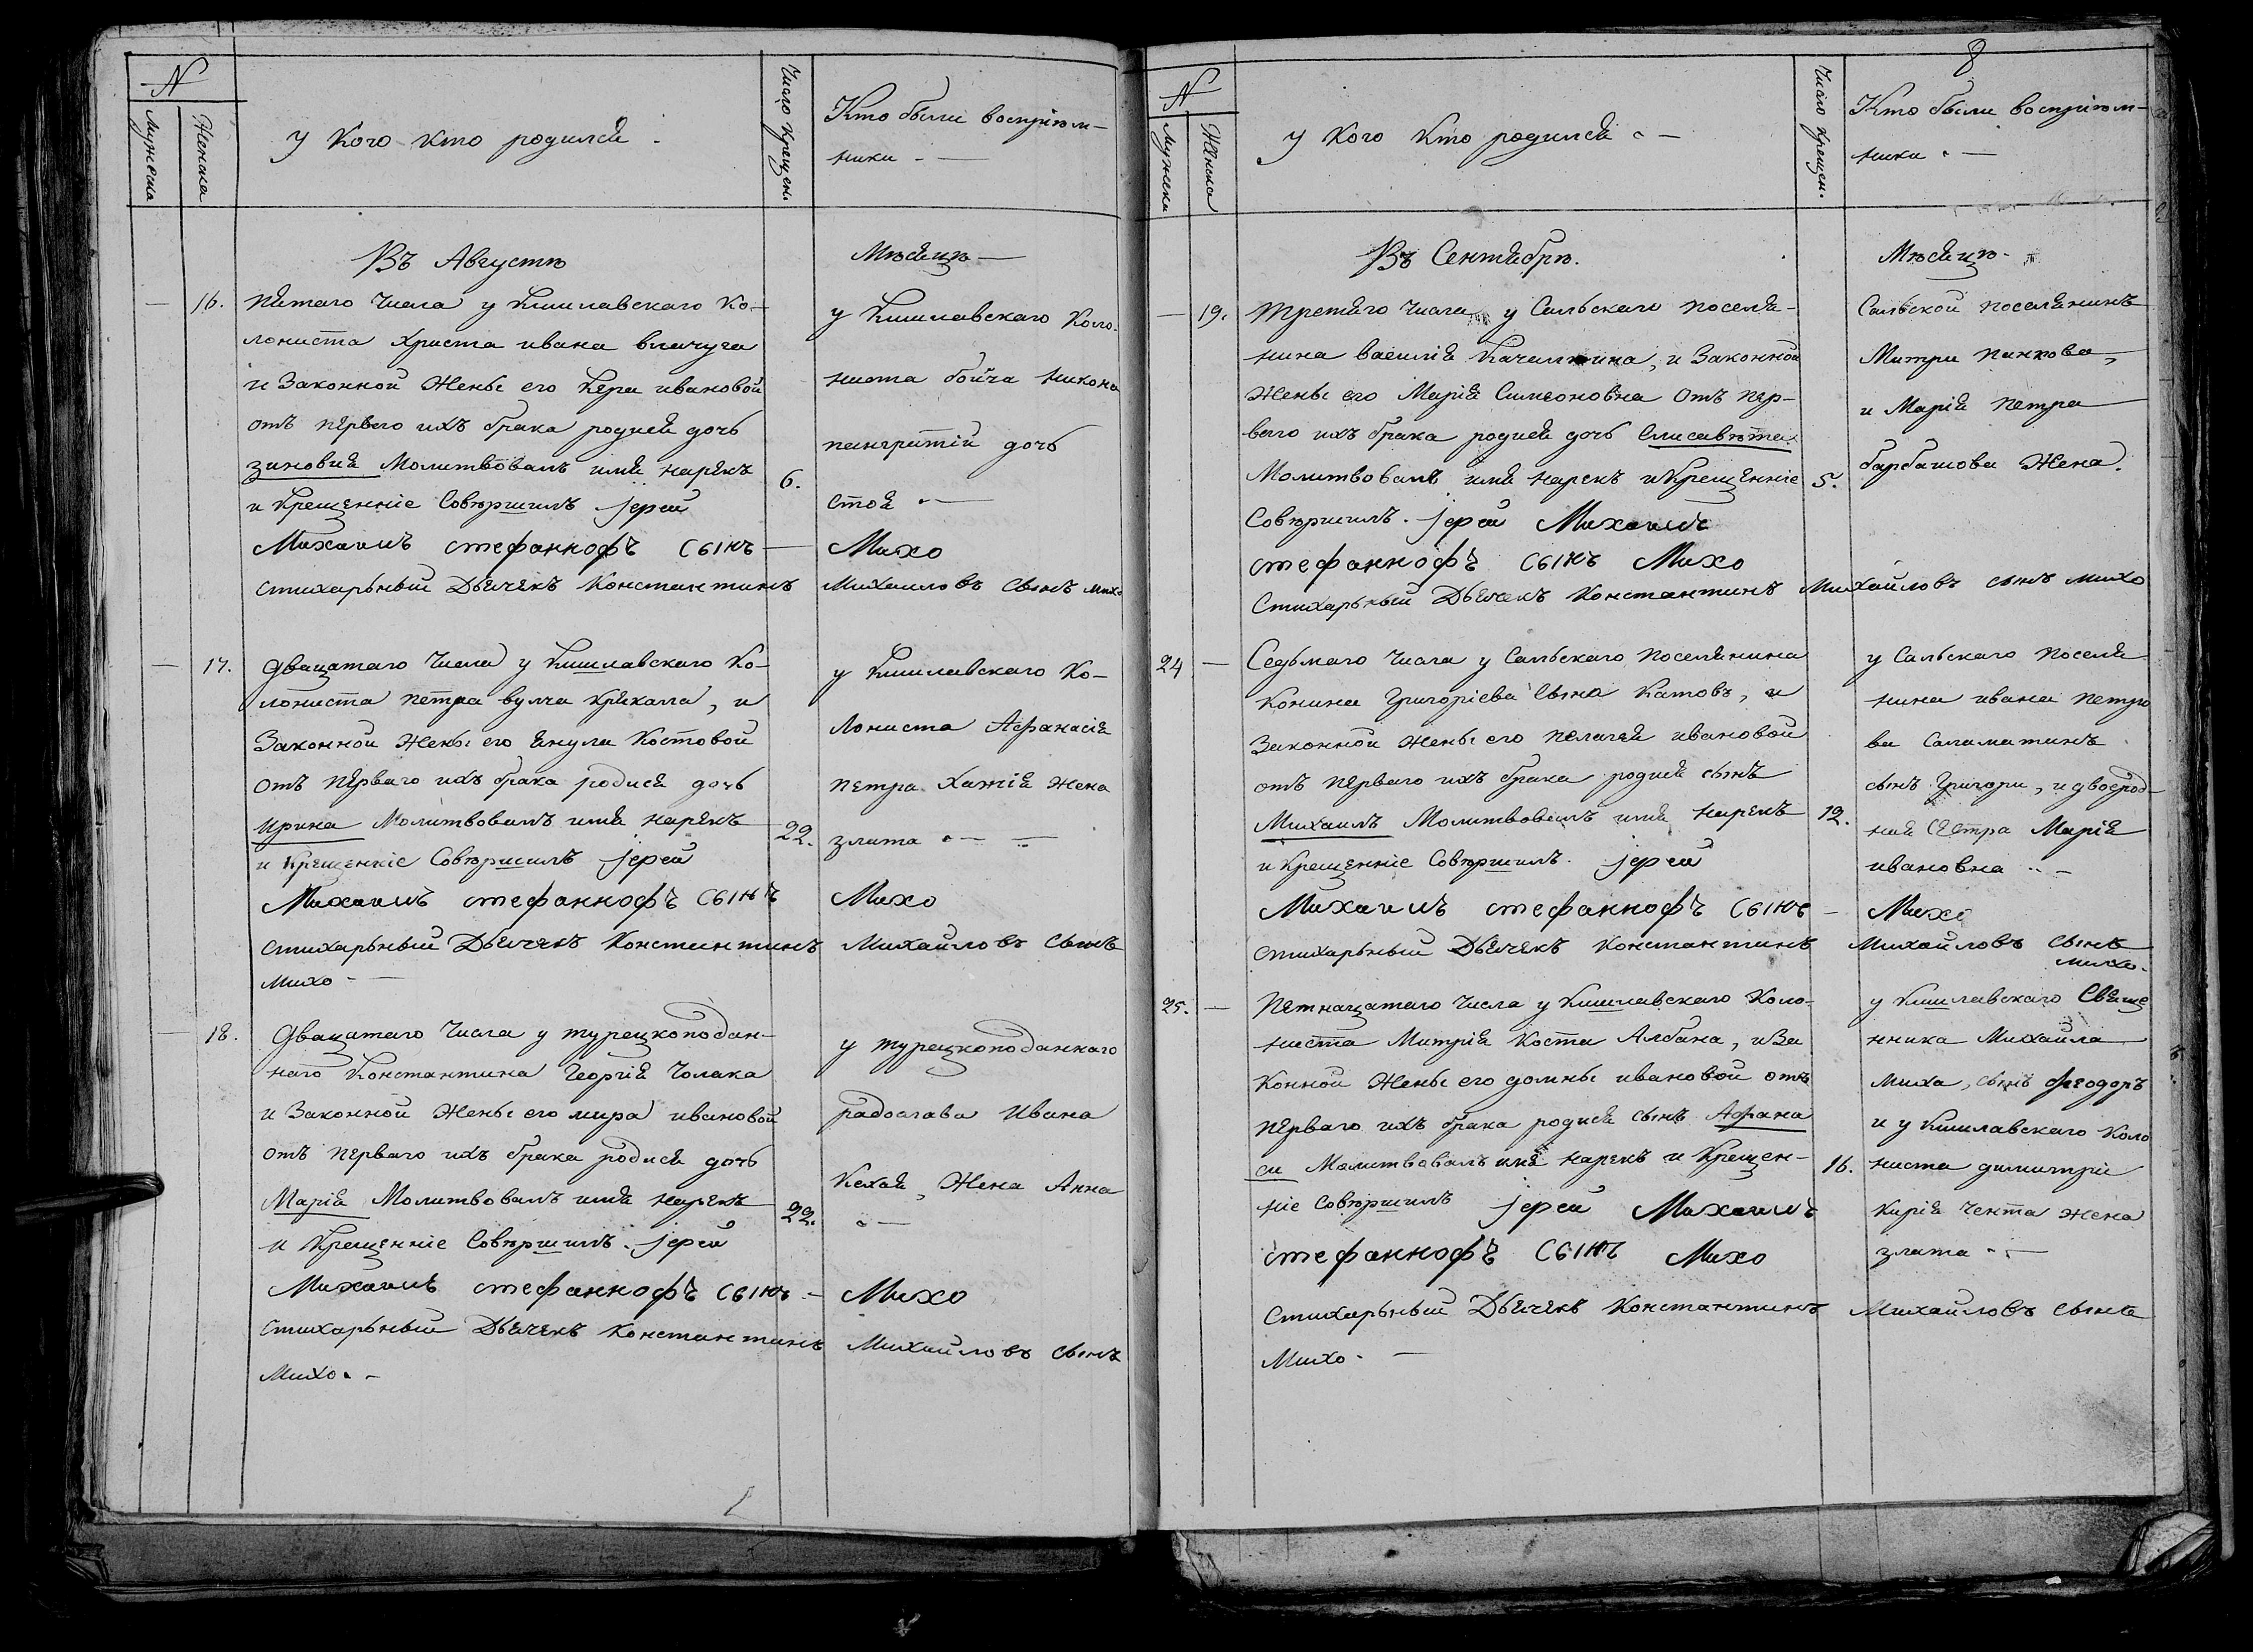 N
Мужеска
Женска
У Кого кто родился
Число Крещен.
Кто были восприем-
ники
Въ Августѣ
Мѣсяцѣ
16.
Пятаго Числа у Кишлавскаго Ко-
лониста Христа ивана влачуга
и Законной Жены его Кера ивановой
отъ перваго ихъ брака родися дочь
зиновия Молитвовалъ имя нарекъ
и Крещенніе Совѣршилъ јерей
Михаилъ стефанкофъ сынъ
стихарьный Дьячекъ Константинъ
6.
у Кишлавскаго Коло-
ниста бойча Никона
панкратій дочь
стоя
Михо
Михаиловъ Сынъ михо
17.
двацатаго Числа у Кишлавскаго Ко-
лониста петра вулча Крякала, и
Законной Жены его Янули Костовой
отъ перваго ихъ брака родися дочь
Ирина Молитвовалъ имя нарекъ
и Крещенніе Совѣршилъ јерей
Михаилъ стефанкофъ сынъ
стихарьный Дьячекъ Константинъ
михо
22.
у Кишлавскаго Ко-
лониста Афанасія
петра Хажія Жена
злата
Михо
Михайловъ Сынъ
18.
двацатаго Числа у турецкоподан-
наго Константина Георгія Чолака
и Законной Жены его мира ивановой
отъ перваго ихъ брака родися дочь
Марія Молитвовалъ имя нарекъ
и Крещенніе Совѣршилъ јерей
Михаилъ стефанкофъ сынъ
стихарьный Дьячекъ Константинъ
михо
22.
у турецкоподаннаго
радослава Ивана
Кехая, Жена Анна
Михо
Михайловъ сынъ
8
N
Мужска
Женска
У Кого Кто родился
Число Крещен.
Кто были восприем-
ники
Въ Сентябрѣ.
Мѣсяцѣ
19.
третяго Числа у Сальскаго поселя-
нина василія Качалкина, и Законной
Жены его Марія Симеоновна отъ пер-
ваго ихъ брака родися дочь Елисавѣта
Молитвовалъ имя нарекъ и Крещенніе
Совѣршилъ. јерей Михаилъ
стефанкофъ сынъ Михо
Стихарьный Дьячекъ Константинъ Михайловъ сынъ михо
5.
Сальской поселянинъ
Митри панкова,
и Марія петра
барбашова Жена.
24
Седьмаго Числа у Сальскаго поселянина
Конина Григоріева Сына Катовъ, и
Законной жены его пелагея ивановой
отъ перваго ихъ брака родися сынъ
Михаилъ Молитвовалъ имя нарекъ
и Крещенніе Совѣршилъ. јерей
Михаилъ стефанкофъ сынъ
стихарьный Дьячекъ Константинъ
12.
у Сальскаго поселя
нина ивана петро
ва Саламатинъ
сынъ Григори, и двоерод-
ная Сестра Марія
ивановна
Михо
Михайловъ сынъ
михо.
25.
Петнацатаго Числа у Кишлавскаго Коло-
ниста Митрія Коста Албана, и За
Конной Жены его домны ивановой отъ
перваго ихъ брака родися сынъ Афана
си Молитвовалъ имя нарекъ и Крещен-
ніе Совѣршилъ јерей Михаилъ
стефанкофъ сынъ Михо
стихарьный Дьячекъ Константинъ
Михо
16.
у Кишлавскаго Свяще
нника Михаила
Миха, сынъ феодоръ
и у Кишлавскаго Коло
ниста димитріи
Кирія Чента жена
злата
Михайловъ сынъ